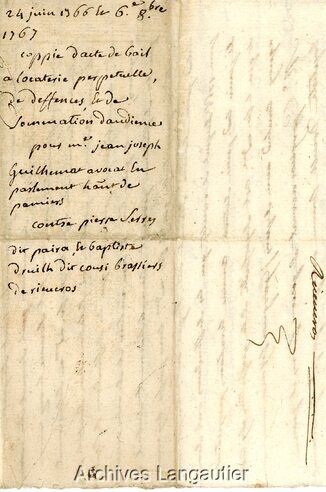 24 juin 1766 et 6.e 8.bre
1767
coppie d'acte de bail
a locaterie perpetuelle,
de deffences et de
sommation d'audience
pour m.e jean joseph
Guilhemat avocat en
parlement hant de
pamiers
contre pierre Serres
dit paira, et baptiste
druilh dit cousi brassiers
de rieucros
Rieucros
Archives Langautier